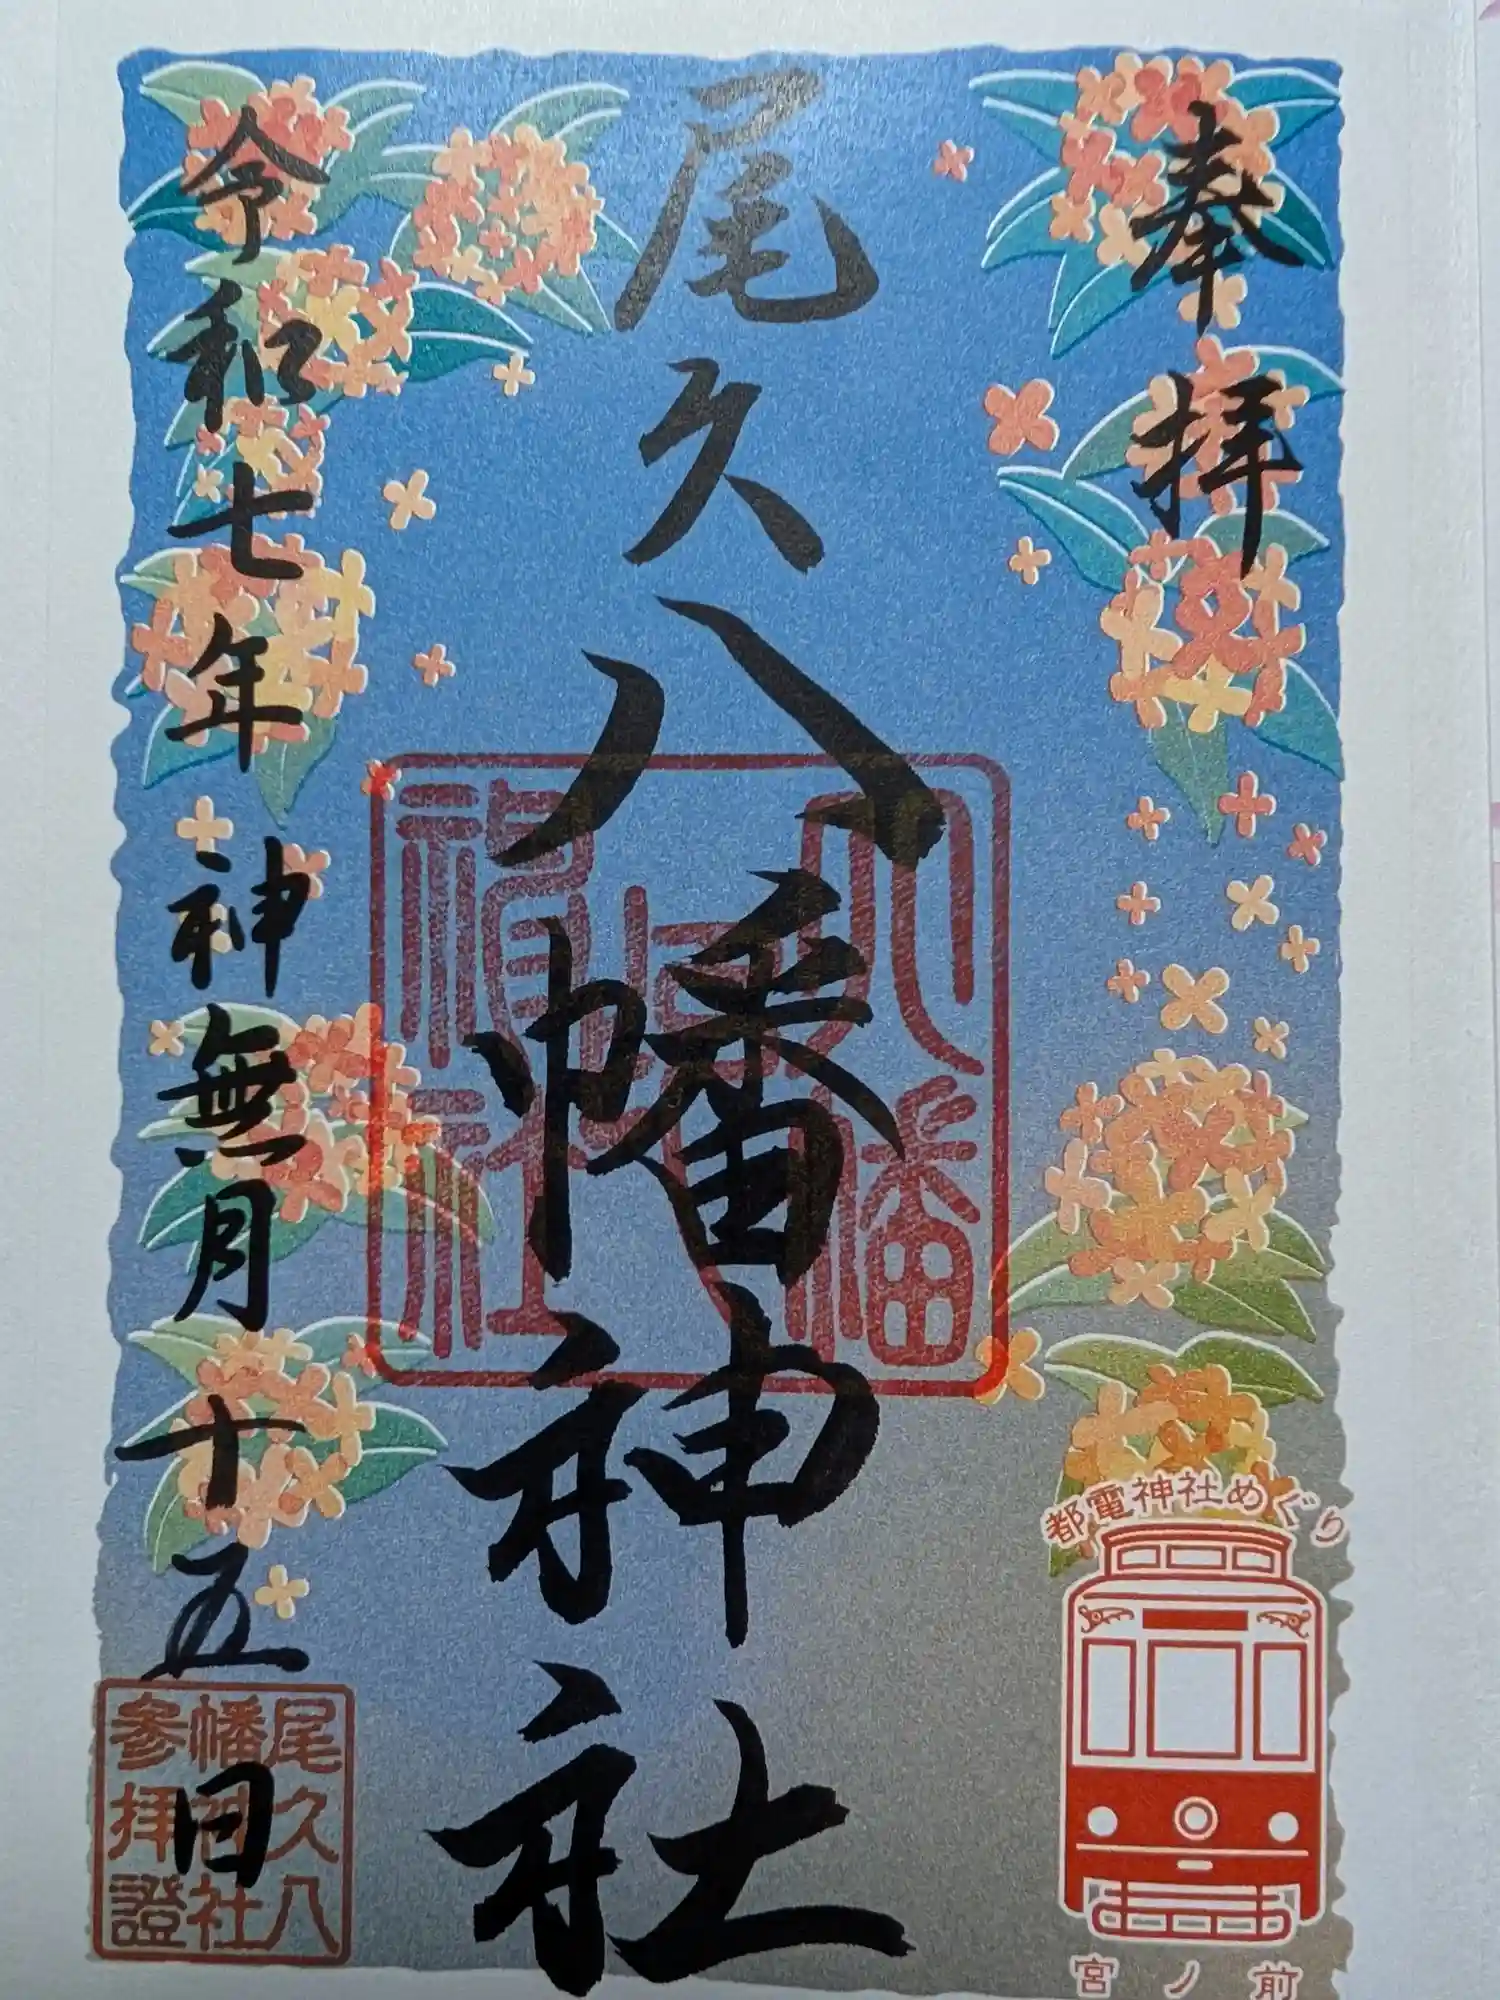 奉拝
尾久八幡神社
令和七年 神無月十五日
八幡
神社
都電神社めぐり
宮ノ前
尾久八
幡神社
参拝證